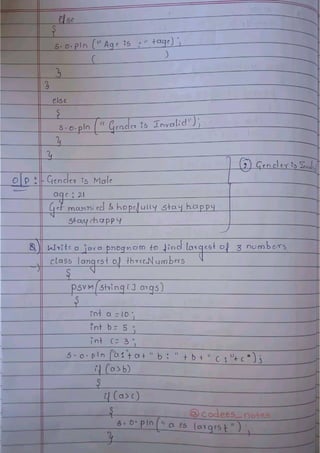 else
{
s.o.pln ("Age is :" + age);
( )
}
}
else
{
s.o.pln ("Gender is Invalid");
}
}
③ Gender is Invalid
O|P :- Gender is Male
age : 21
Get married & hopefully stay happy
stay happy
Q) Write a java program to find largest of 3 numbers
→) class largest of threeNumbers
{
psvm (string [] args)
{
int a = 10 ;
int b = 5 ;
int c = 3 ;
s-o-pln
if (a>b)
{
if (a>c)
{
@codees_notes
s.o.pln ("a is largest") ;
}